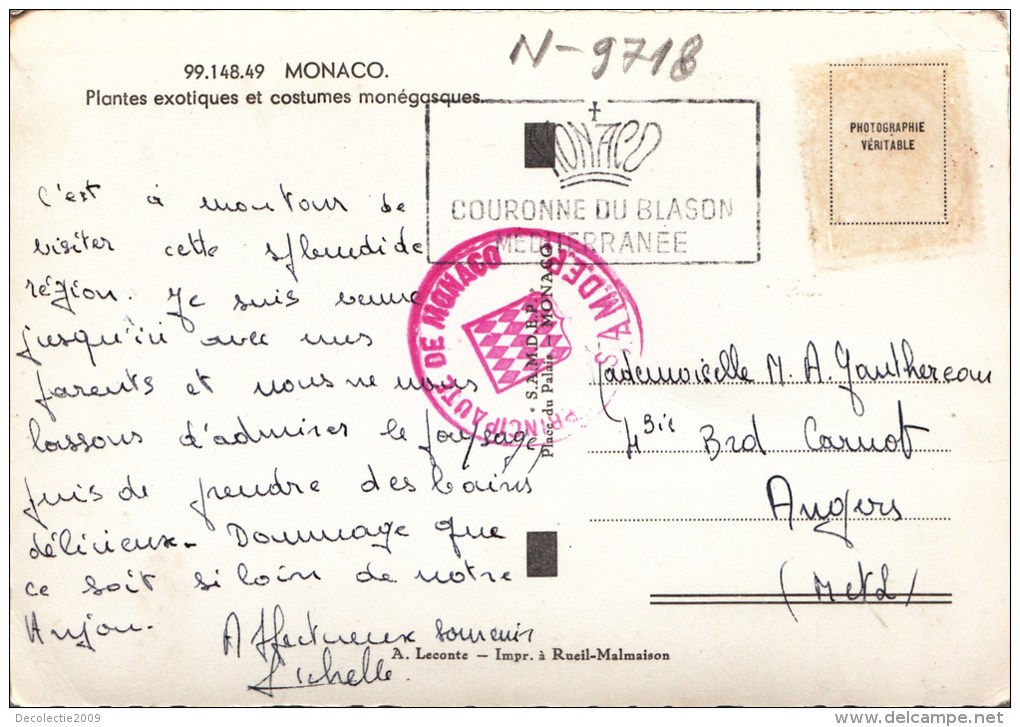 N-9718
99.148.49 MONACO.
Plantes exotiques et costumes monégasques.
MONACO
COURONNE DU BLASON
MEDITERRANÉE
PHOTOGRAPHIE
VÉRITABLE
C'est à mon tour de
visiter cette splendide
région. Je suis venue
jusqu'ici avec mes
parents et nous ne nous
lassons d'admirer le paysage,
puis de prendre des bains
délicieux. Dommage que
ce soit si loin de notre
Anjou.
Affectueux souvenir
PRINCIPAUTÉ DE MONACO
S.A.M.D.E.P.
* S.A.M.D.E.P. *
Place du Palais — MONACO
Mademoiselle M. A. Gauthereau
4 Bis Brd Carnot
Angers
(M et L)
A. Leconte — Impr. à Rueil-Malmaison
Decolectie2009
delcampe.net